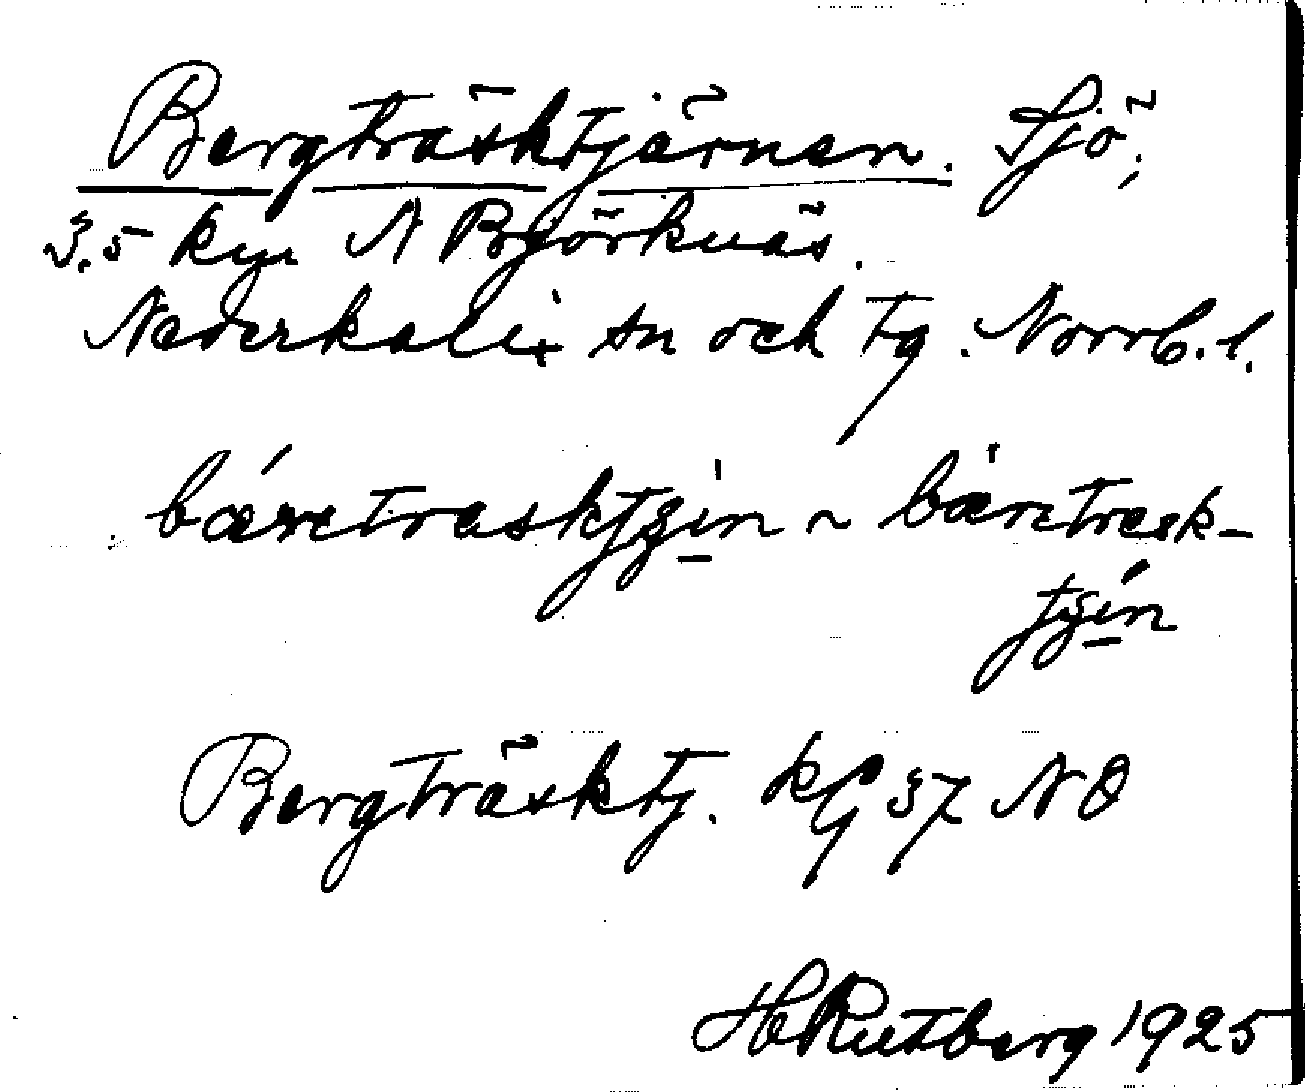 Bergträsktjärnen. Sjö,
3,5 km N Björknäs.
Nederkalix sn och tg. Norrb. l.
bæretrasktjin ~ bæretræsk-
tjin
Bergträsktj. kg 37 NO
H Rutberg 1925